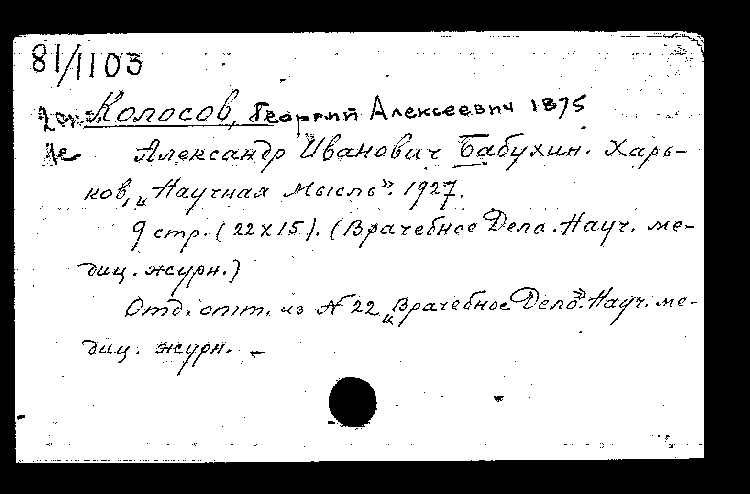 81/1103
Колосов, Георгий Алексеевич 1875
Александр Иванович Бабухин. Харь-
ков, „Научная Мысль". 1927.
9 стр. (22x15). (Врачебное Дело. Науч. ме-
диц. журн.)
Отд. отт. из N 22 „Врачебное Дело". Науч. ме-
диц. журн. –